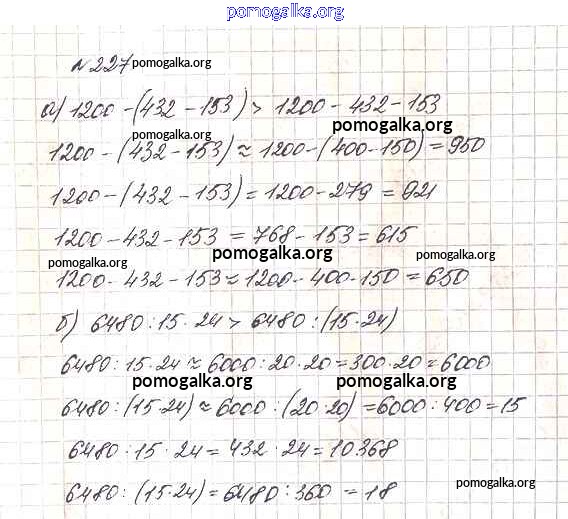 pomogalka.org
№ 227 pomogalka.org
а) 1200 - (432 - 153) > 1200 - 432 - 153
pomogalka.org pomogalka.org
1200 - (432 - 153) ≈ 1200 - (400 - 150) = 950
1200 - (432 - 153) = 1200 - 279 = 921
1200 - 432 - 153 = 768 - 153 = 615
pomogalka.org pomogalka.org pomogalka.org
1200 - 432 - 153 ≈ 1200 - 400 - 150 = 650
б) 6480 : 15 · 24 > 6480 : (15 · 24)
6480 : 15 · 24 ≈ 6000 : 20 · 20 = 300 · 20 = 6000
pomogalka.org pomogalka.org
6480 : (15 · 24) ≈ 6000 : (20 · 20) = 6000 : 400 = 15
6480 : 15 · 24 = 432 · 24 = 10368
6480 : (15 · 24) = 6480 : 360 = 18 pomogalka.org